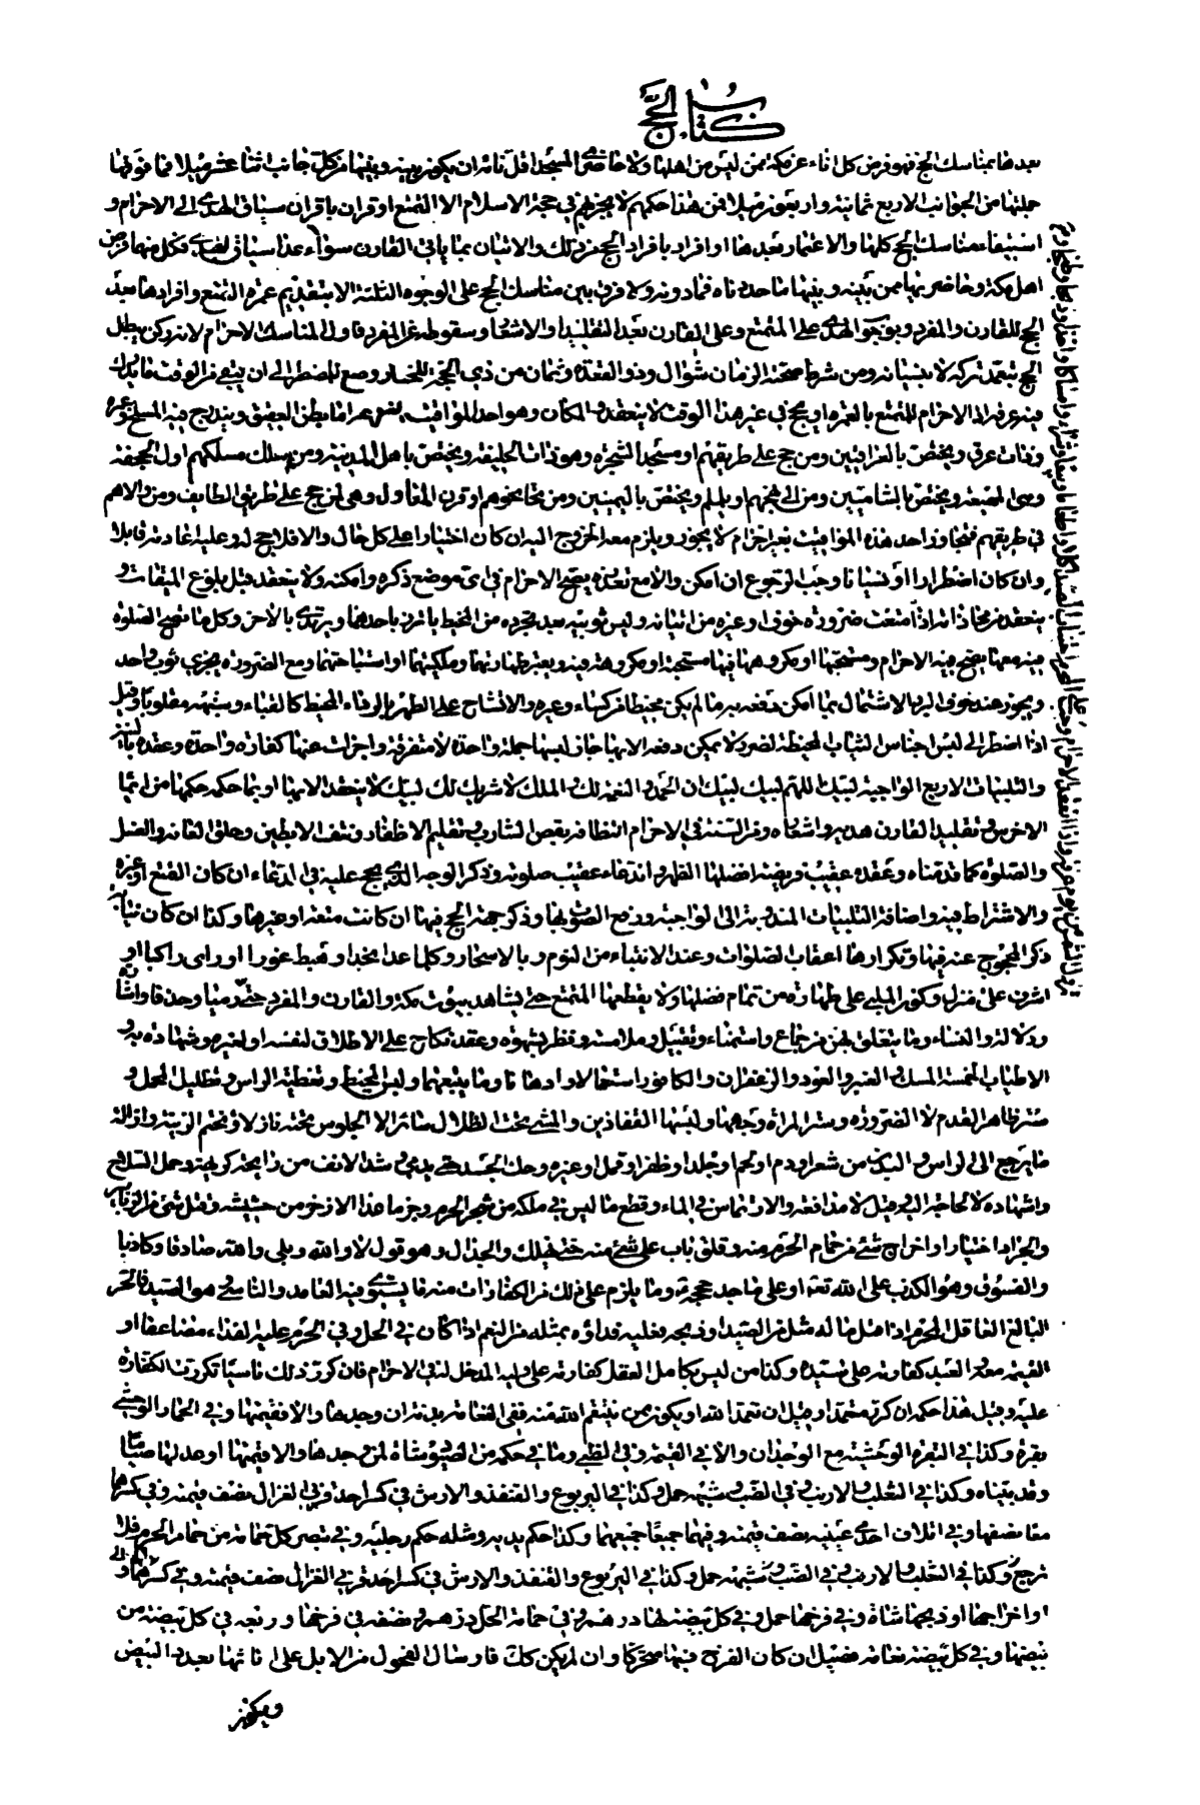 كتاب الحج
بعدها مناسك الحج فهو فرض كل ناء عن مكة ممن ليس من اهلها ولا حاضري المسجد اقل نائه ان يكون بينه وبينها من كل جانب اثنا عشر ميلا فما فوقها
جملتها من الجوانب الاربع ثمانية واربعون ميلا فمن هذا حكمهم لا يجزيهم في حجة الاسلام الا التمتع او قران باقران سياق الهدي الى الاحرام و
استيفاء مناسك الحج كلها والاعتمار بعدها او افراد بافراد الحج من ذلك والاتيان بما ياتي القارن سواء عدا سياق الهدي فكل منهما فرض
اهل مكة وحاضريها ممن بينه وبينها ما حددناه فما دونه ولا فرق بين مناسك الحج على الوجوه الثلثة الا بتقديم عمرة التمتع وافرادها بعد
الحج للقارن والمفرد وبوجوب الهدي على المتمتع وعلى القارن بعد التقليد او الاشعار وسقوطه عن المفرد فاول المناسك الاحرام لانه ركن يبطل
الحج بتعمد تركه لا بنسيانه ومن شرط صحته الزمان شوال وذو القعدة وثمان من ذي الحجة للمختار وتسع للمضطر الى ان يبقى من الوقت ما يدرك
فيه عرفة اذ الاحرام للمتمتع بالعمرة او بحج في غير هذا الوقت لا ينعقد والمكان وهو احد المواقيت بطن العقيق ويندرج فيه المسلخ وغمرة
وذات عرق ويختص بالعراقيين ومن حج على طريقهم او مسجد الشجرة وهو ذات الحليفة ويختص باهل المدينة ومن يسلك مسلكهم او الجحفة
وهي المهيعة ويختص بالشاميين ومن الى نهجهم او يلملم ويختص باليمنيين ومن نحا نحوهم او قرن المنازل وهي لمن حج على طريق الطايف ومن والاهم
في طريقهم فتجاوز احد هذه المواقيت بغير احرام لا يجوز ويلزم معه الخروج اليه ان كان اختيارا على كل حال والا فلا حج له وعليه اعادته قابلا
وان كان اضطرارا او نسيانا وجب الرجوع ان امكن والا مع تعذره يصح الاحرام في اي موضع ذكره وامكنه ولا ينعقد قبل بلوغ الميقات و
ينعقد من محاذاته اذا امتنعت ضرورة خوف او غيره من اتيانه ولبس ثوبيه بعد تجرده من المخيط ياتزر باحدهما ويرتدي بالاخر وكل ما تصح الصلوة
فيه منها يصح فيه الاحرام ومستحبها او مكروهها فيها مستحبة او مكروهة فيه ويعتبر طهارتهما وملكيتهما او استباحتهما ومع الضرورة يجزي ثوب واحد
ويجوز عند خوف البرد الاشتمال بما امكن دفعه به ما لم يكن مخيطا من كساء وغيره والاتشاح على الظهر بالرداء المخيط كالقباء وشبهه مقلوبا وقيل
اذا اضطر الى لبس اجناس الثياب المخيطة لضرر لا يمكن دفعه الا بها جاز لبسها جملة واحدة لا متفرقة واجزات عنها كفارة واحدة وعقده بالنية
والتلبيات الاربع الواجبة لبيك اللهم لبيك لبيك ان الحمد والنعمة لك والملك لا شريك لك لبيك لا ينعقد الا بها او بما حكمه حكمها من ايماء
الاخرس وتقليد القارن هديه واشعاره ومن السنة في الاحرام النظافة بقص الشارب وتقليم الاظفار ونتف الابطين وحلق العانة والغسل
والصلوة كما قدمناه وعقده عقيب فريضة افضلها الظهر والدعاء عقيب صلوته وذكر الوجه الذي يحج عليه في الدعاء ان كان التمتع او غيره
والاشتراط فيه واضافة التلبيات المندوبة الى الواجبة ورفع الصوت بها وذكر جهة الحج فيها ان كانت متعة او غيرها وكذا ان كان نيابة
ذكر المحجوج عنه فيها وتكرارها اعقاب الصلوات وعند الانتباه من النوم وبالاسحار وكلما علا نجدا او هبط غورا او راى راكبا او
اشرف على منزل وكون الملبي على طهارة من تمام فضلها ولا يقطعها المتمتع حتى يشاهد بيوت مكة والقارن والمفرد حتى
ودلالة والنساء وما يتعلق بهن من جماع واستمناء وتقبيل وملامسة ونظر بشهوة وعقد نكاح على الاطلاق لنفسه او لغيره وشهادة به و
الاطياب الخمسة المسك والعنبر والعود والزعفران والكافور استعمالا وادهانا وما يتبعهما ولبس المخيط وتغطية الراس وتظليل المحمل و
ستر ظاهر القدم لا لضرورة وستر المراة وجهها ولبسها القفازين والمشي تحت الظلال سائرا لا الجلوس تحته نازلا وتختم الزينة وازالة
ما يرجع الى الراس والبدن من شعر او دم او لحم او جلد او ظفر او قمل او غيره وحك الجسد حتى يدمى وشد الانف من رائحة كريهة وحمل السلاح
واشهاده لا لحاجة اليه وقيل لا مدافعة والارتماس في الماء وقطع ما ليس في ملكه من شجر الحرم وجز ما عدا الاذخر من حشيشه وقتل شئ من الزنابير
والجراد اختيارا واخراج شئ من حمام الحرم منه وغلق باب على شئ منه حتى يهلك والجدال وهو قول لا والله وبلى والله صادقا وكاذبا
والفسوق وهو الكذب على الله تعالى او على احد حججه وما يلزم على ذلك من الكفارات منه ما يستوي فيه العامد والناسي وهو الصيد فالحر
البالغ العاقل المحرم اذا قتل ما له مثل من الصيد او ذبحه فعليه فداؤه بمثله من النعم اذا كان في الحل وفي الحرم عليه الفداء مضاعفا او
القيمة معه والعبد كفارته على سيده وكذا من ليس بكامل العقل كفارته على وليه المدخل له في الاحرام فان كرر ذلك ناسيا تكررت الكفارة
عليه وقيل هذا حكمه ان كرره متعمدا وقيل ان تعمد او يكون ممن ينتقم الله منه ففي النعامة بدنة ان وجدها والا فقيمتها وفي الحمار الوحشي
بقرة وكذا في البقرة الوحشية مع الوجدان والا في القيمة وفي الظبي وما في حكمه من الصيد شاة لمن وجدها والا قيمتها او عدلها صياما
وقد بيناه وكذا في الثعلب والارنب وفي الضب وشبهه حمل وكذا في اليربوع والقنفذ والارش في كسر احد قرني الغزال نصف قيمته وفي كسرهما
معا نصفها وفي اتلاف احدى عينيه نصف قيمته وفيهما جميعا جميعها وكذا حكم يديه ومثله حكم رجليه وفي تنفير كل حمامة من حمام الحرم فلا
ترجع وكذا في الثعلب والارنب وفي الضب وشبهه حمل وكذا في اليربوع والقنفذ والارش في كسر احد قرني الغزال نصف قيمته وفي كسرهما و
او اخراجها او ذبحها شاة وفي فرخها حمل وفي كل بيضة لها درهم وفي حمامة الحل درهم ونصفه في فرخها وربعه في كل بيضة من
بيضها وفي كل بيضة نعامة فصيل ان كان الفرخ فيها متحركا وان لم يكن كذلك فارسال الفحول من الابل على اناثها بعدد البيض
ويكون